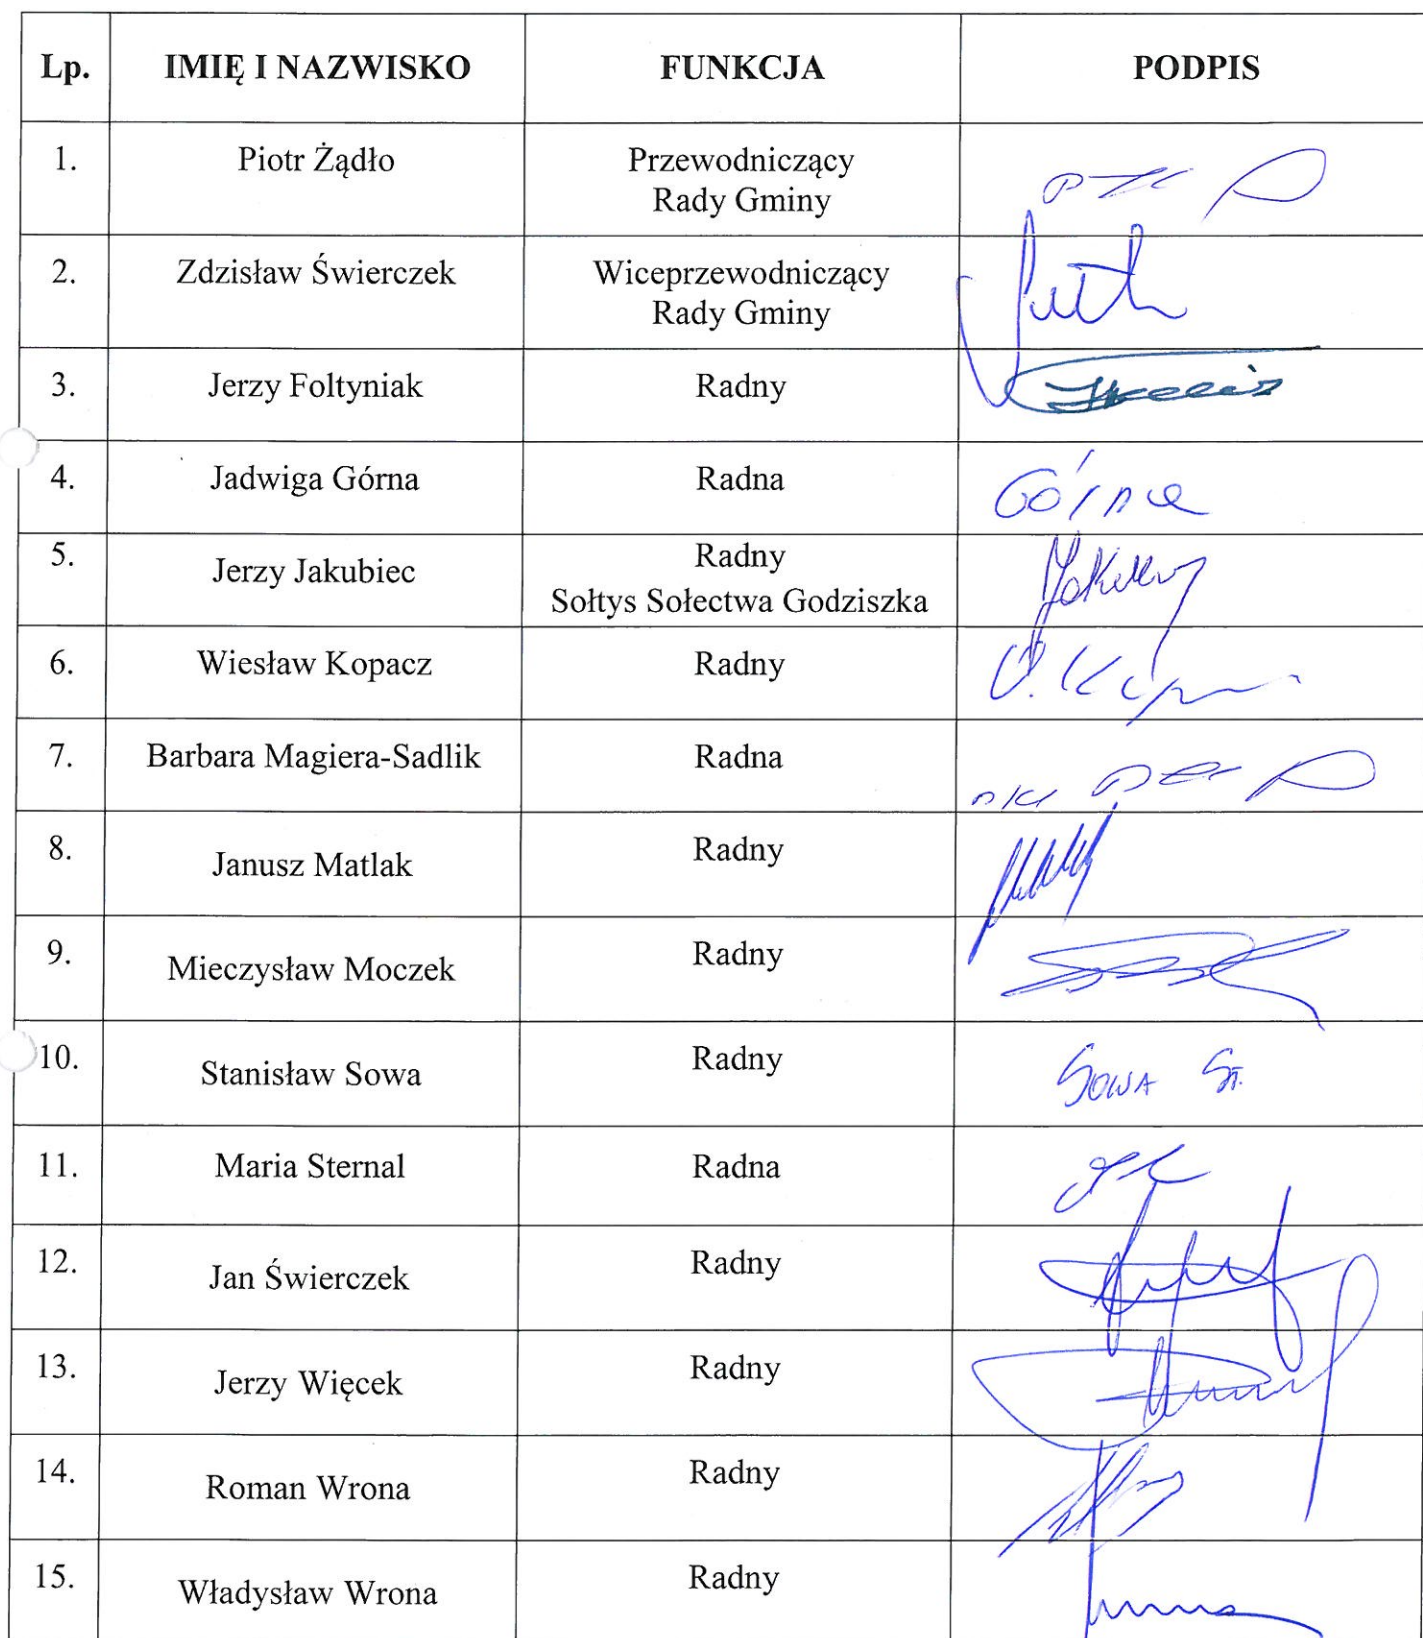 Lp. IMIĘ I NAZWISKO FUNKCJA PODPIS
1. Piotr Żądło Przewodniczący
Rady Gminy
2. Zdzisław Świerczek Wiceprzewodniczący
Rady Gminy
3. Jerzy Foltyniak Radny
4. Jadwiga Górna Radna Górna
5. Jerzy Jakubiec Radny
Sołtys Sołectwa Godziszka
6. Wiesław Kopacz Radny
7. Barbara Magiera-Sadlik Radna
8. Janusz Matlak Radny
9. Mieczysław Moczek Radny
10. Stanisław Sowa Radny SOWA ST.
11. Maria Sternal Radna
12. Jan Świerczek Radny
13. Jerzy Więcek Radny
14. Roman Wrona Radny
15. Władysław Wrona Radny